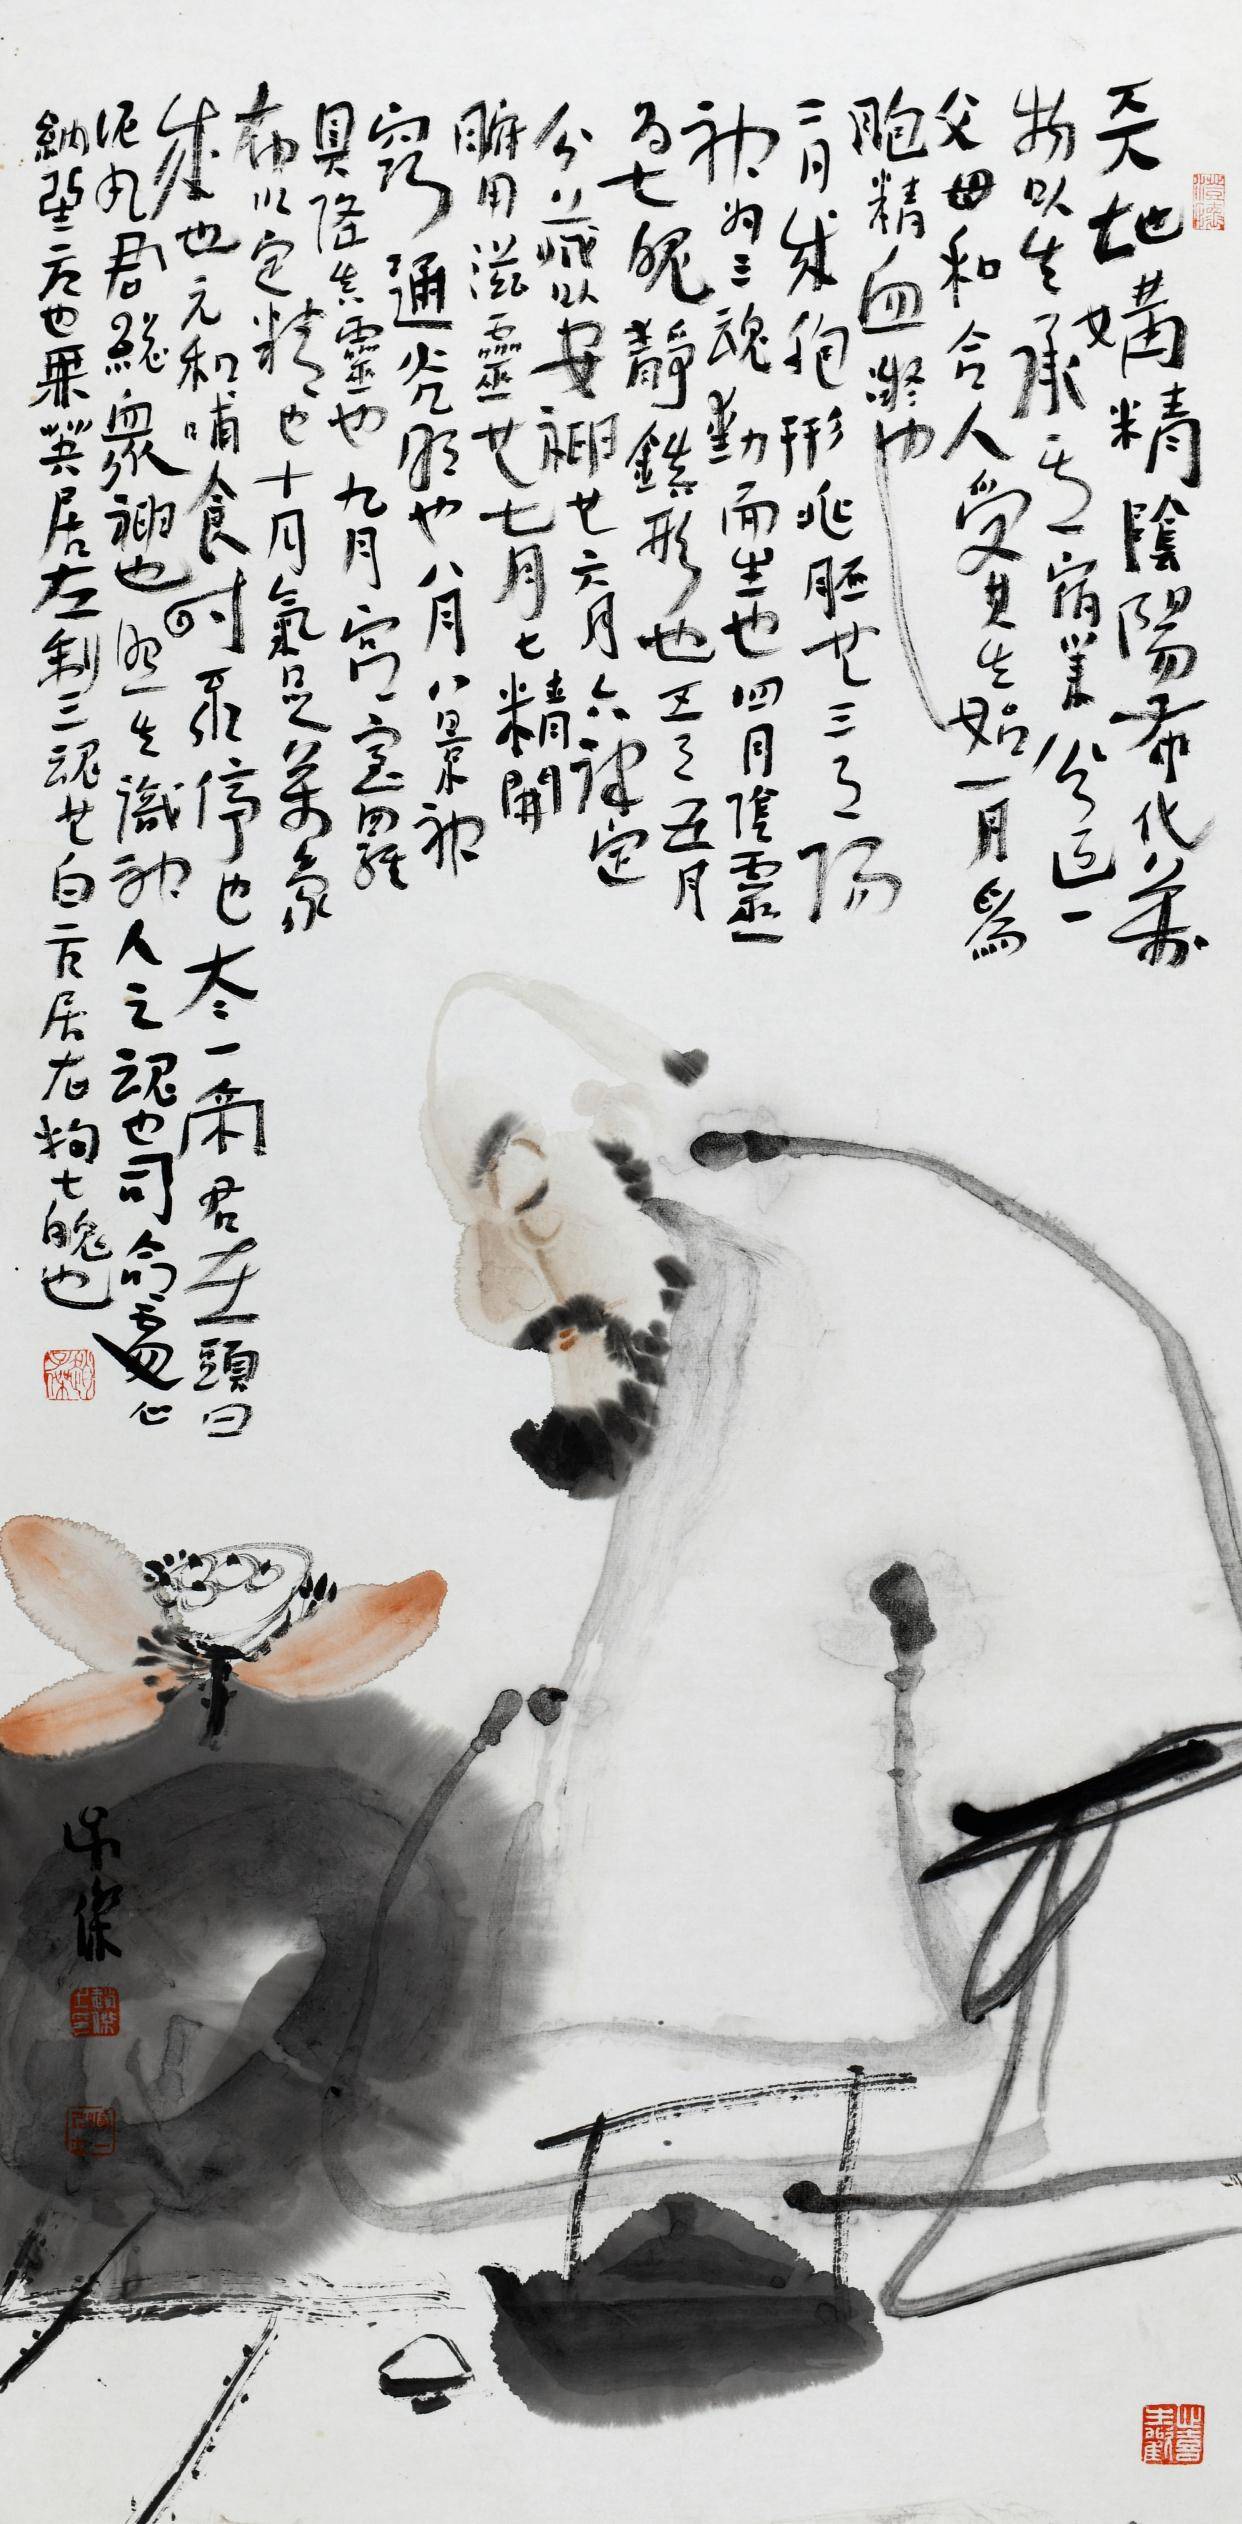 天地媾精陰陽布化萬
物以生承其宿業分近一
父母和合人受其生始一月爲
胞精血凝也
二月成胞形兆胚也三月陽
神为三魂動而生也四月陰靈
为七魄靜鎮形也五月五
分藏以安神也六月六律定
腑用滋靈也七月七精開
竅通光明也八月八景神
具降真靈也九月宮室羅
布以定精也十月氣足萬象
成也元和哺食時不停也太一帝君在頭曰
泥丸君總衆神也照生識神人之魂也司命處心
納生元也無英居左制三魂也白元居右拘七魄也